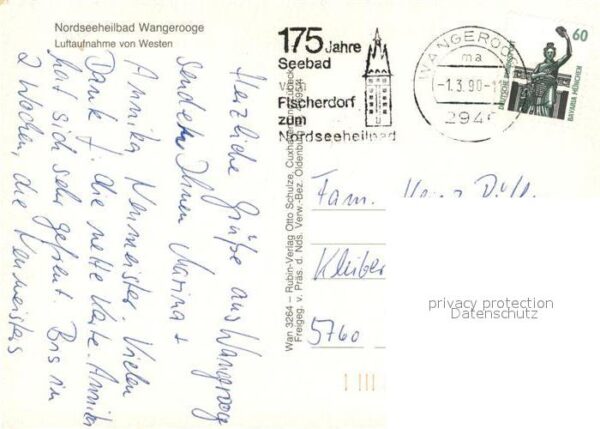 Nordseeheilbad Wangerooge
Luftaufnahme von Westen
175 Jahre
Seebad
vom
Fischerdorf
zum
Nordseeheilbad
WANGEROOGE
ma
-1.3.90-1
294
60
DEUTSCHE BUNDESPOST
BAVARIA MÜNCHEN
Herzliche Grüße aus Wangerooge
sendet Ihnen Marina +
Annika Neumeister. Vielen
Dank f. die nette Karte. Annika
hat sich sehr gefreut. Bis in
2 Wochen, die Neumeisters
Wan 3264 – Rubin-Verlag Otto Schulze, Cuxhaven
Freigeg. v. Präs. d. Nds. Verw.-Bez. Oldenburg
Fam.
Kleiber
5760
privacy protection
Datenschutz